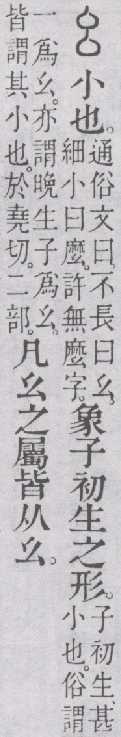 幺小也。通俗文曰。不長曰幺。細小曰麽。許無麽字。象子初生之形。子初生甚小也。俗謂
一爲幺。亦謂晚生子爲幺。皆謂其小也。於堯切。二部。凡幺之屬皆从幺。